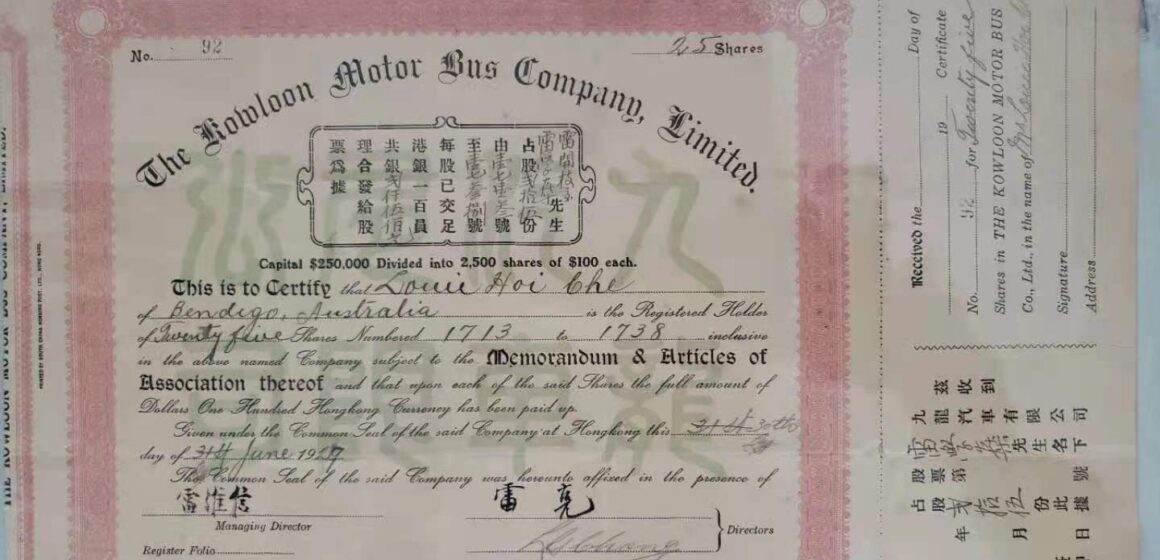 No. 92
25 Shares
The Kowloon Motor Bus Company, Limited.
先生
占股貳拾伍份
由壹七壹三號
至壹七叁捌號
每股已交足
港銀一百員
共銀貳仟伍佰元
理合發給股
票爲據
Capital $250,000 Divided into 2,500 shares of $100 each.
This is to Certify that Louie Hoi Che
of Bendigo, Australia is the Registered Holder
of Twenty five Shares Numbered 1713 to 1738 inclusive
in the above named Company subject to the Memorandum & Articles of
Association thereof and that upon each of the said Shares the full amount of
Dollars One Hundred Hongkong Currency has been paid up.
Given under the Common Seal of the said Company at Hongkong this 31st 30th
day of 31st June 1927
The Common Seal of the said Company was hereunto affixed in the presence of
雷維信
雷亮
Managing Director
Directors
Register Folio
THE KOWLOON MOTOR BUS COMPANY LIMITED.
PRINTED BY SOUTH CHINA MORNING POST, LTD., HONG KONG.
Received the Day of
19 Certificate
No. 92 for Twenty five
Shares in THE KOWLOON MOTOR BUS
Co., Ltd., in the name of
Signature
Address
茲收到
九龍汽車有限公司
雷 先生名下
占股票第 號
占股貳拾伍份此據
年 月 日